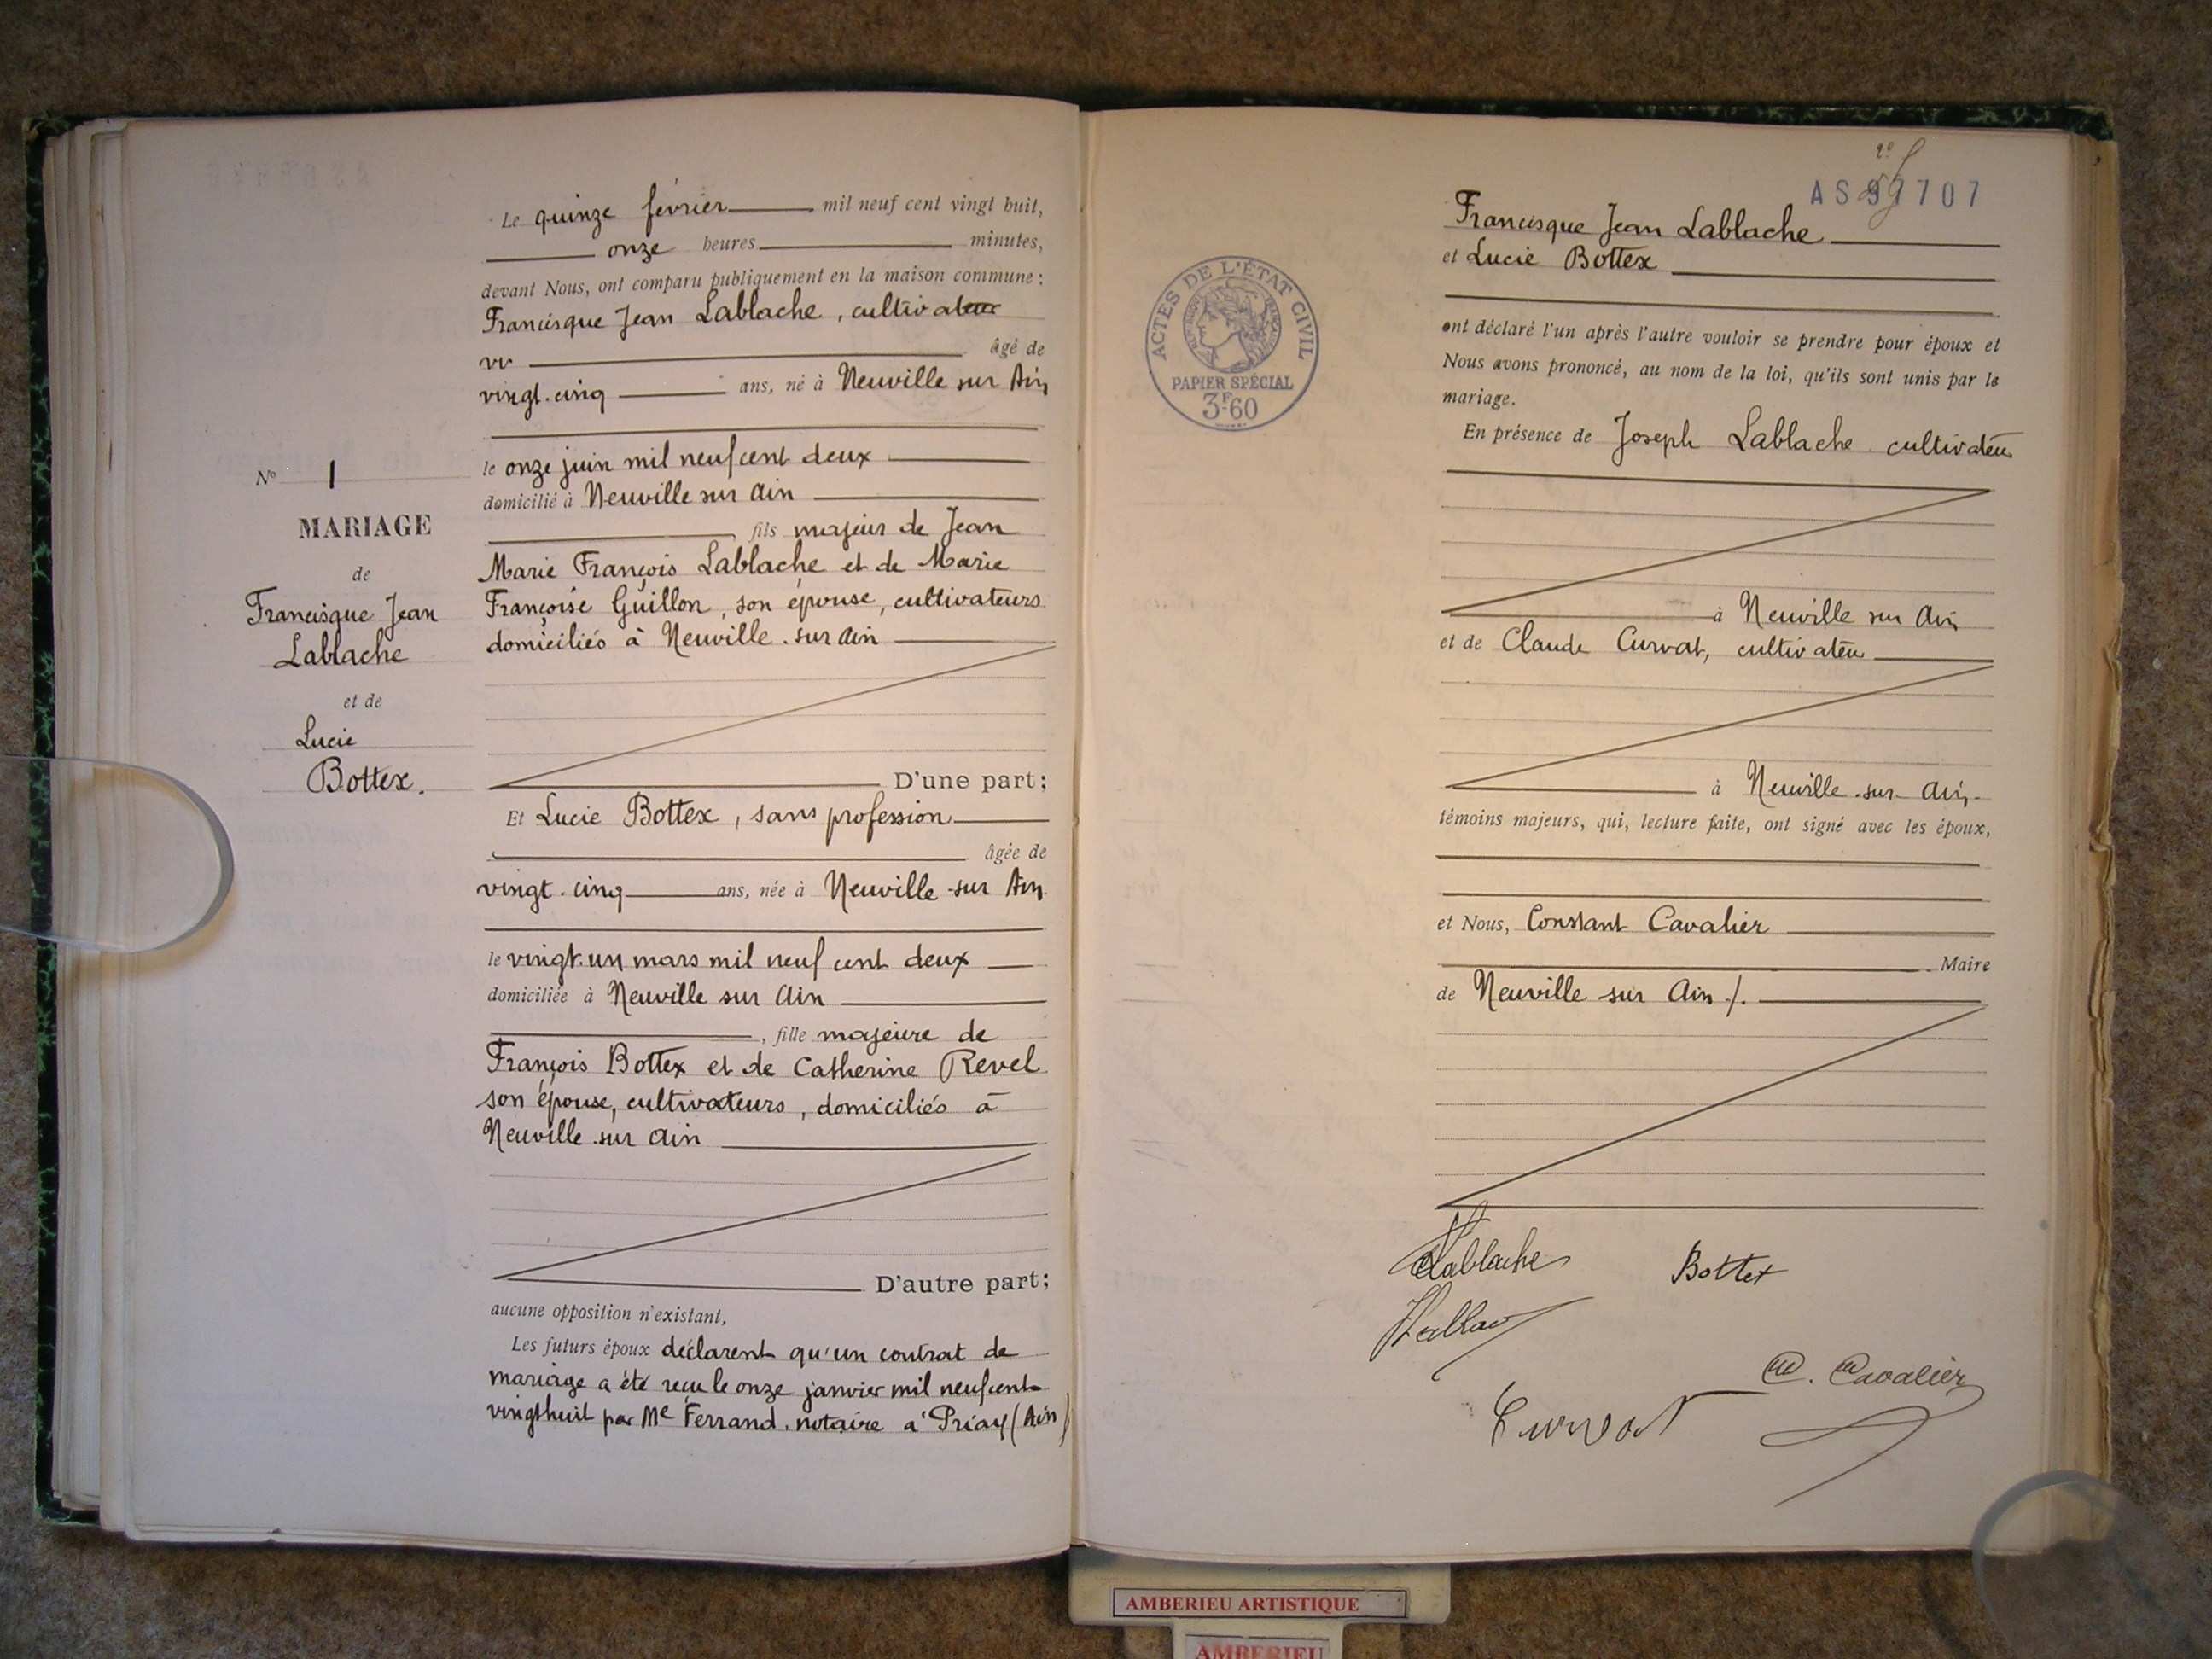 Le quinze février mil neuf cent vingt huit,
onze heures minutes,
devant Nous, ont comparu publiquement en la maison commune :
Francisque Jean Lablache, cultivateur
âgé de
vingt-cinq ans, né à Neuville sur Ain
le onze juin mil neuf cent deux
domicilié à Neuville sur Ain
fils majeur de Jean
Marie François Lablache et de Marie
Françoise Guillon, son épouse, cultivateurs
domiciliés à Neuville-sur Ain
D'une part;
Et Lucie Bottex, sans profession
âgée de
vingt-cinq ans, née à Neuville-sur Ain
le vingt-un mars mil neuf cent deux
domiciliée à Neuville sur Ain
, fille majeure de
François Bottex et de Catherine Revel
son épouse, cultivateurs, domiciliés à
Neuville-sur Ain
D'autre part;
aucune opposition n'existant,
Les futurs époux déclarent qu'un contrat de
mariage a été reçu le onze janvier mil neuf cent
vingt huit par Me Ferrand, notaire à Priay (Ain)
No 1
MARIAGE
de
Francisque Jean
Lablache
et de
Lucie
Bottex.
Francisque Jean Lablache
et Lucie Bottex
ont déclaré l'un après l'autre vouloir se prendre pour époux et
Nous avons prononcé, au nom de la loi, qu'ils sont unis par le
mariage.
En présence de Joseph Lablache cultivateur
à Neuville sur Ain
et de Claude Curvat, cultivateur
à Neuville-sur-Ain-
témoins majeurs, qui, lecture faite, ont signé avec les époux,
et Nous, Constant Cavalier
Maire
de Neuville sur Ain ./.
Lablache
Bottex
Curvat
Cavalier
ACTES DE L'ÉTAT CIVIL
PAPIER SPÉCIAL
3F60
AMBERIEU ARTISTIQUE
AMBERIEU